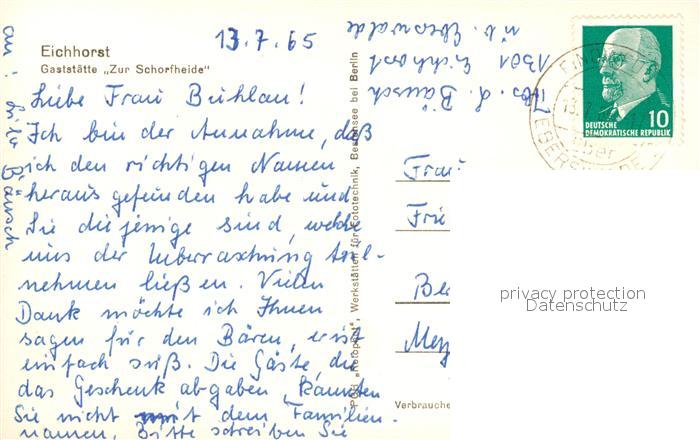 Eichhorst
Gaststätte „Zur Schorfheide"
13.7.65
Liebe Frau Bühlau!
Ich bin der Annahme, daß
ich den richtigen Namen
herausgefunden habe und
Sie diejenige sind, welche
uns der Überraschung teil-
nehmen ließen. Vielen
Dank möchte ich Ihnen
sagen für den Bären, er ist
einfach süß. Die Gäste, die
das Geschenk abgaben, kannten
Sie nicht mit dem Familien-
namen. Bitte schreiben Sie
an: Bäusch
Abs. L. Bäusch
1301 Eichhorst
üb. Eberswalde
PGH „Rotophot", Werkstätten für Fototechnik, Bestensee bei Berlin
10
DEUTSCHE
DEMOKRATISCHE REPUBLIK
Frau
Ber
privacy protection
Datenschutz
Verbrauche